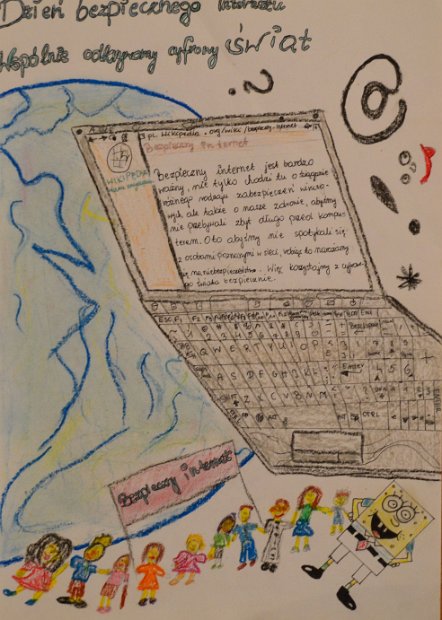 Dzień bezpiecznego internetu
Wspólnie odkrywamy cyfrowy świat
@
pl.wikipedia.org/wiki/
Bezpieczny internet
WIKIPEDIA
Bezpieczny internet jest bardzo
ważny, nie tylko chodzi tu o
różnego rodzaju zabezpieczeń wiruso-
wych, ale także o nasze zdrowie, abyśmy
nie przebywali zbyt długo przed kompu-
terem. Oto abyśmy nie spotykali się
z osobami poznanymi w sieci, robiąc to narażamy
się na niebezpieczeństwo. Więc korzystajmy z cyfrowe-
go świata bezpiecznie.
Q W E R T Y U I O P
A S D F G H J K L
Enter
Bezpieczny internet